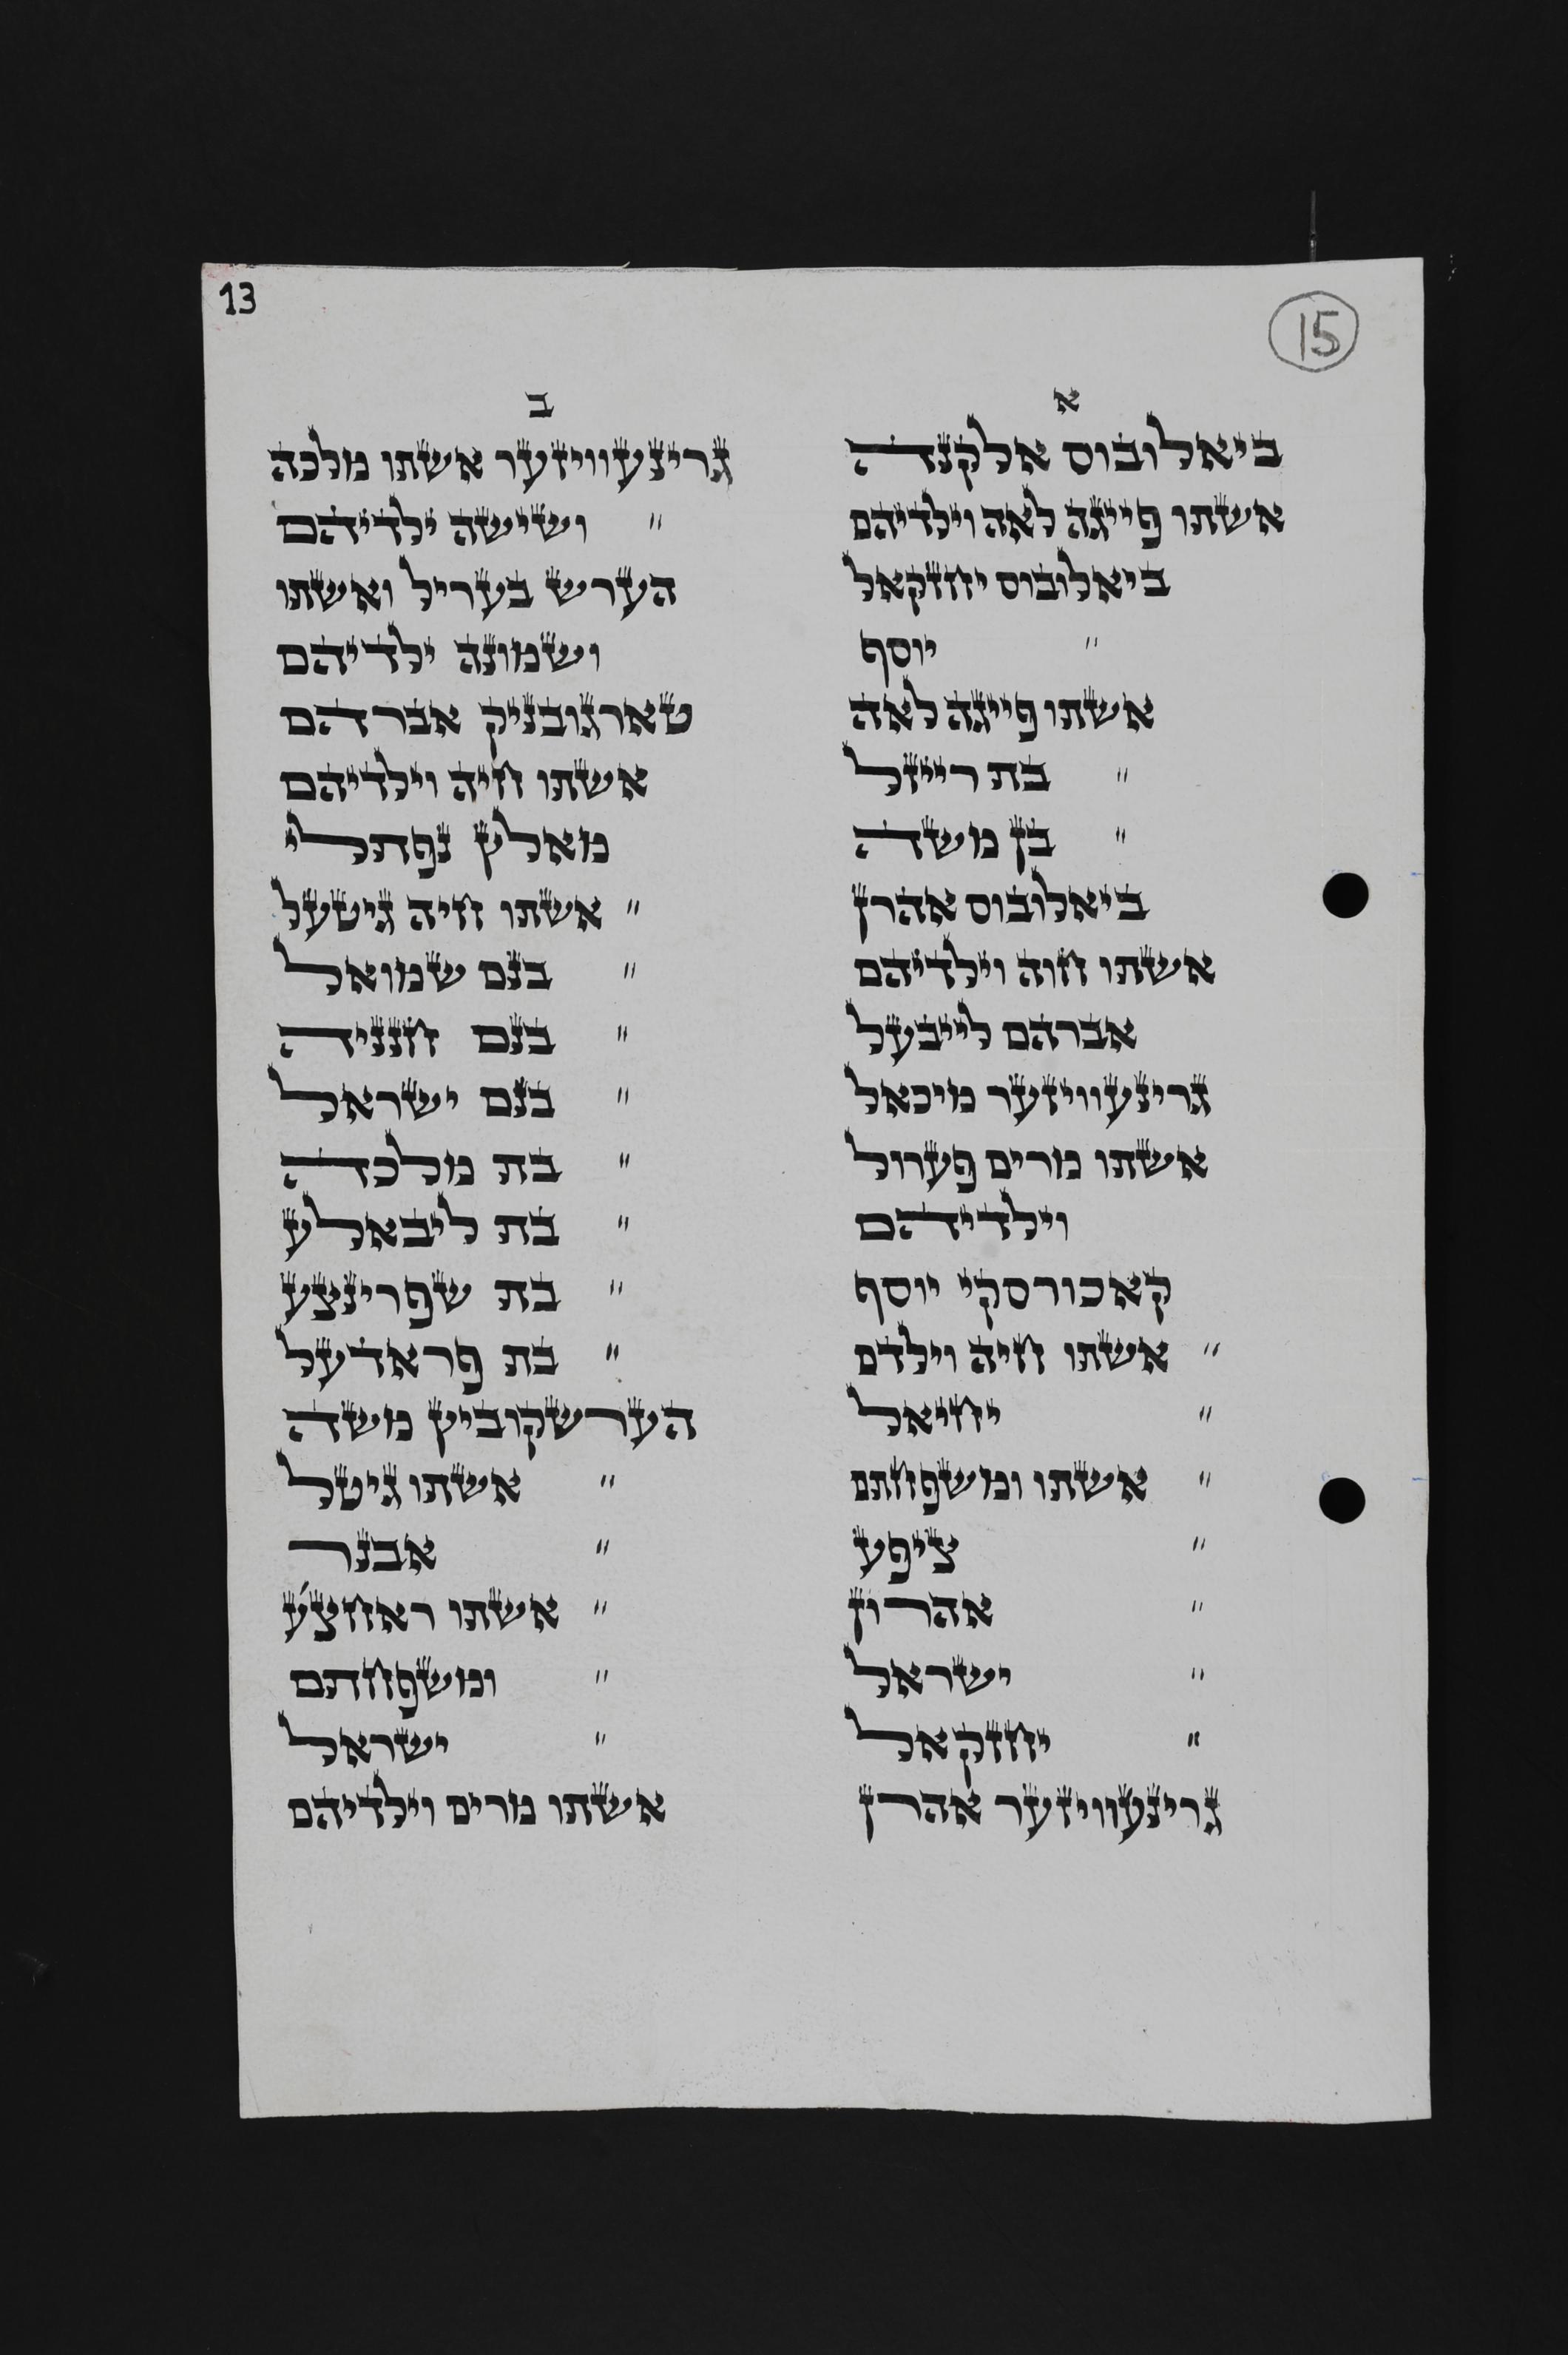 13
15
א
ביאלובוס אלקנה
אשתו פייגה לאה וילדיהם
ביאלובוס יחזקאל
" יוסף
אשתו פייגה לאה
" בת רייזל
" בן משה
ביאלובוס אהרן
אשתו חוה וילדיהם
אברהם לייבעל
גרינעווויזער מיכאל
אשתו מרים פערול
וילדיהם
קאכורסקי יוסף
" אשתו חיה וילדם
" יחיאל
" אשתו ומשפחתם
" ציפע
" אהרון
" ישראל
" יחזקאל
גרינעווויזער אהרן
ב
גרינעווויזער אשתו מלכה
" ושישה ילדיהם
הערש בעריל ואשתו
ושמונה ילדיהם
טארגובניק אברהם
אשתו חיה וילדיהם
מאלץ נפתלי
" אשתו חיה גיטעל
" בנם שמואל
" בנם חנניה
" בנם ישראל
" בת מלכה
" בת ליבאלע
" בת שפרינצע
" בת פראדעל
הערשקוביץ משה
" אשתו גיטל
" אבנר
" אשתו ראחצ'ע
" ומשפחתם
" ישראל
אשתו מרים וילדיהם